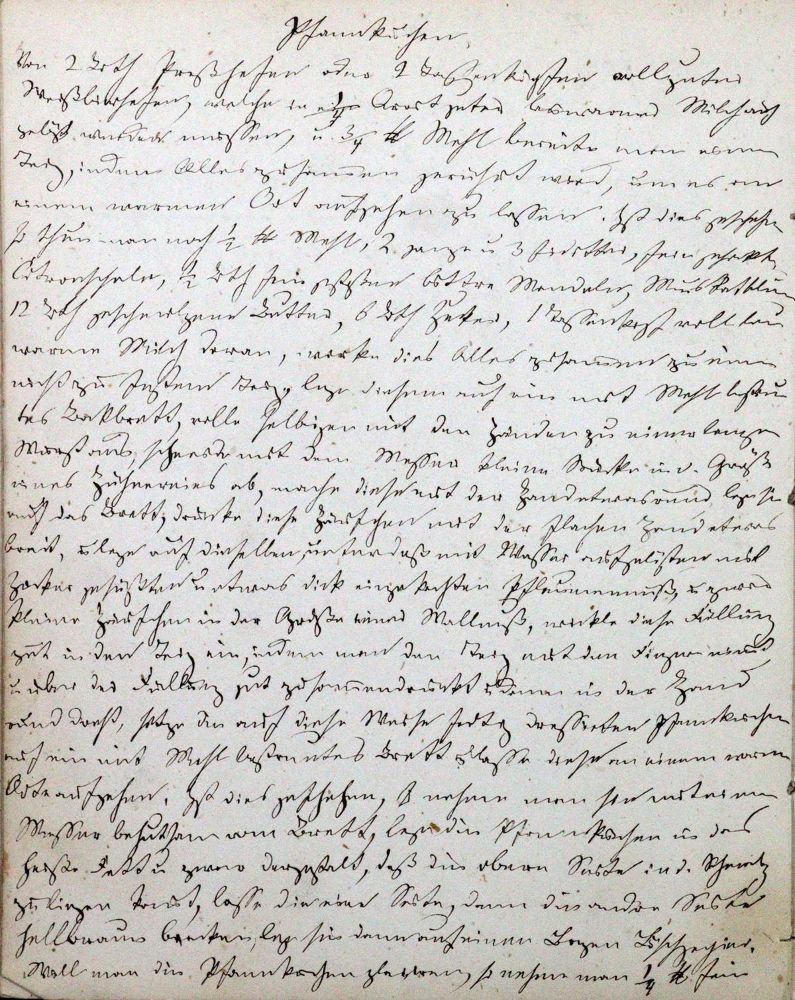 Pfannkuchen.
Von 2 Loth Preßhefen oder 2 Tassenköpfen voll guter
Weißbierhefen, welche in 1/4 Quart guter lauwarmer Milch auf
gelöst werden müssen, u. 3/4 ℔ Mehl bereite man einen
Teig, indem Alles zusammen gerührt wird, um es an
einem warmen Ort aufgehen zu lassen. Ist dies geschehen
so thue man noch 1/2 ℔ Mehl, 2 ganze u 3 Eidotter, fein gehackte
Citronschale, 1/2 Loth fein bittre Mandeln, Muskatblume
12 Loth geschmolzene Butter, 6 Loth Zucker, 1 Tassenkopf voll lau
warme Milch daran, wirke dies Alles zusammen zu einem
nicht zu festem Teig, lege diesen auf ein mit Mehl bestreu
tes Backbrett, rolle selbigen mit den Händen zu einer langen
Wurst aus, schneide mit dem Messer kleine Stücke in d. Größe
eines Hühnereies ab, mache diese mit der Hand etwas rund lege sie
auf das Brett, drücke diese Häufchen mit der flachen Hand etwas
breit, u lege auf dieselben, mit Wasser aufgelösten mit
Zucker gesüßten u etwas dick eingekochten Pflaumenmuß, u zwar
kleine Häufchen in der Größe einer Wallnuß, wickle diese Füllung
gut in den Teig ein, indem man den Teig mit den Fingern
u über der Füllung gut zusammendrückt u dann in der Hand
rund dreht, setze die auf diese Weise fertig dressirten Pfannkuchen
auf ein mit Mehl bestreutes Brett u lasse diese an einem warmen
Orte aufgehen. Ist dies geschehen, so nehme man sie mit einem
Messer behutsam vom Brett, lege die Pfannkuchen in das
heiße Fett u zwar dergestalt, daß die obere Seite in d. Schmalz
zu liegen kömt, lasse die eine Seite, dann die andre Seite
hellbraun backen, lege sie dann auf einen Bogen Löschpapier.
Will man die Pfannkuchen glasiren, so nehme man 1/4 ℔ fein